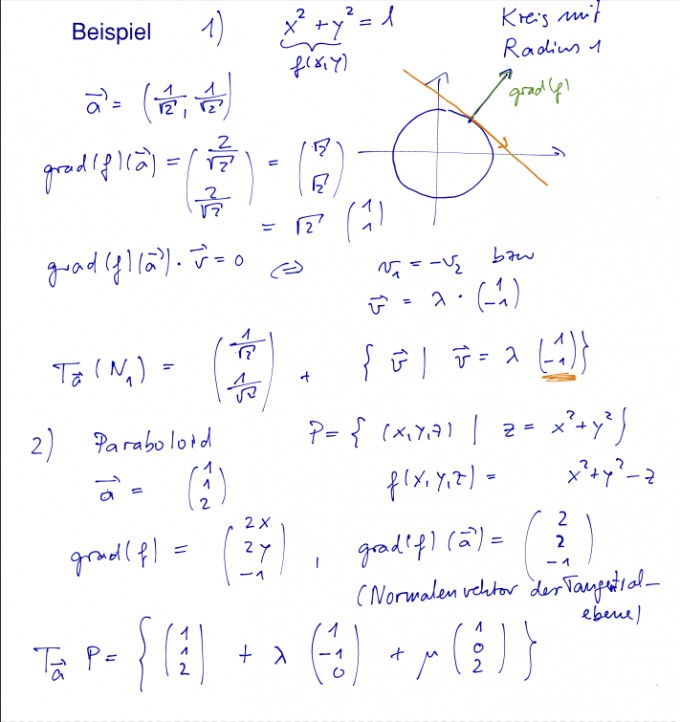 Beispiel 1) x² + y² = 1 Kreis mit
f(x,y) Radius 1
a⃗ = (1/√2, 1/√2) grad(f)
grad(f)(a⃗) = (2/√2, 2/√2) = (√2, √2)
= √2 (1, 1)
grad(f)(a⃗) · v⃗ = 0 ⇔ v₁ = -v₂ bzw
v⃗ = λ · (1, -1)
T_a⃗ (N₁) = (1/√2, 1/√2) + { v⃗ | v⃗ = λ (1, -1) }
2) Paraboloid P = { (x,y,z) | z = x² + y² }
a⃗ = (1, 1, 2) f(x,y,z) = x² + y² - z
grad(f) = (2x, 2y, -1) , grad(f)(a⃗) = (2, 2, -1)
(Normalenvektor der Tangential-
ebene)
T_a⃗ P = { (1, 1, 2) + λ (1, -1, 0) + μ (1, 0, 2) }